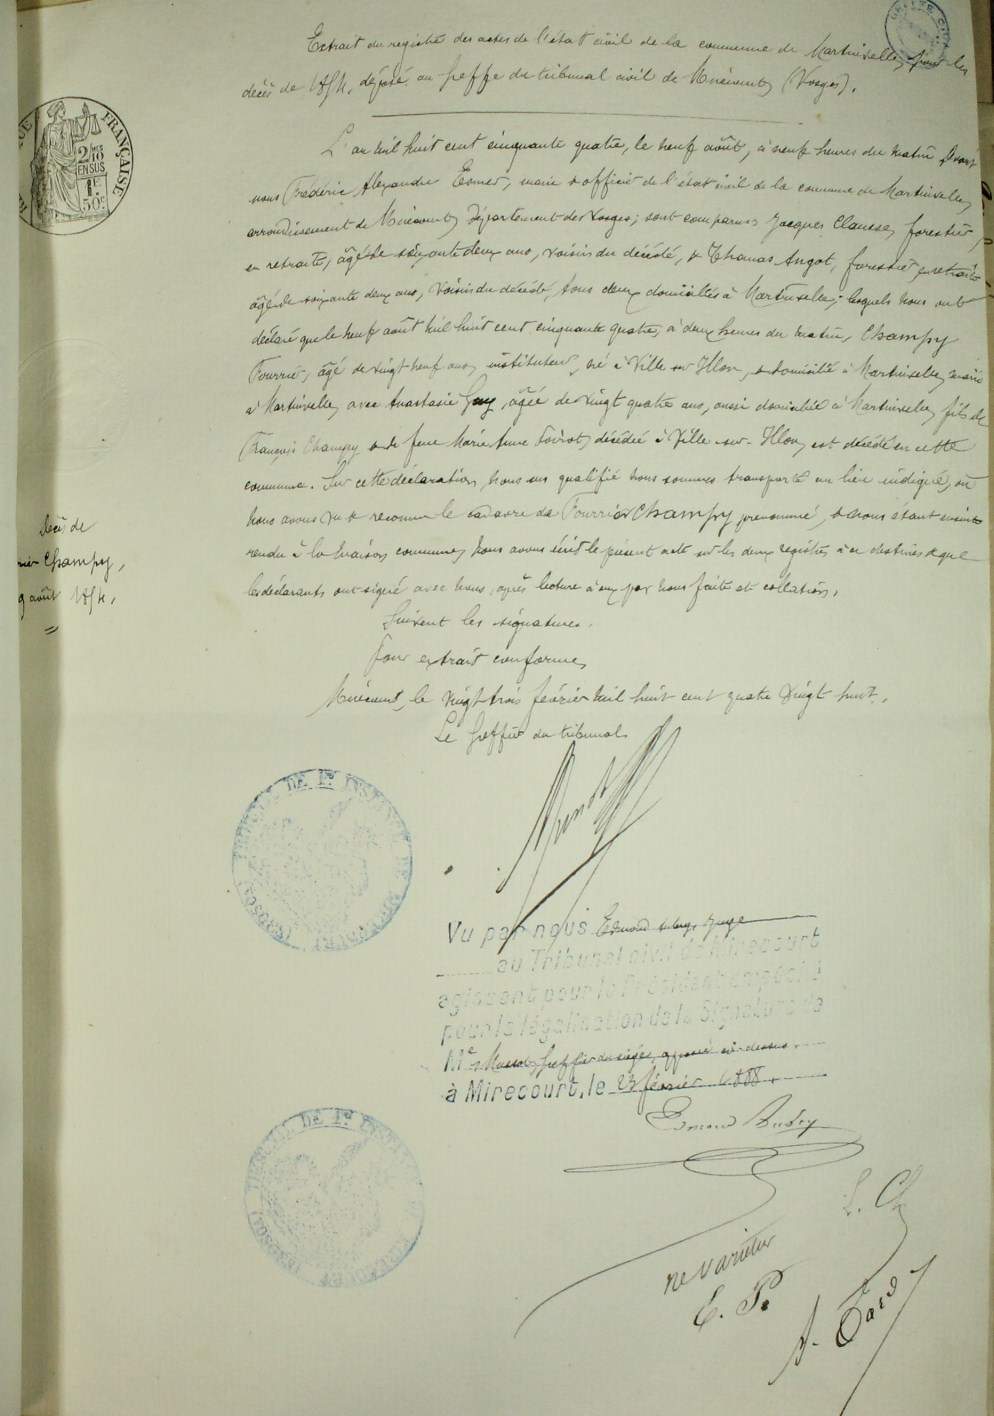 Extrait du registre des actes de l'état civil de la commune de Martinvelle, pour les
décès de 1854, déposé au greffe du tribunal civil de Mirecourt (Vosges).
L'an mil huit cent cinquante quatre, le neuf août, à neuf heures du matin, devant
nous Frédéric Alexandre Esmer, maire & officier de l'état civil de la commune de Martinvelle,
arrondissement de Mirecourt, Département des Vosges; sont comparus Jacques Clausse, forestier
en retraite, âgé de soixante deux ans, voisin du décédé, & Thomas Angot, forestier en retraite
âgé de soixante deux ans, voisin du décédé, tous deux domiciliés à Martinvelle; lesquels nous ont
déclaré que le neuf août mil huit cent cinquante quatre, à deux heures du matin, Champy
Fourrier, âgé de vingt neuf ans, instituteur, né à Ville sur Illon, & domicilié à Martinvelle, marié
à Martinvelle, avec Anastasie Guy, âgée de vingt quatre ans, aussi domiciliée à Martinvelle, fils de
François Champy & de feue Marie Anne Poirot, décédée à Ville-sur-Illon, est décédé en cette
commune. Sur cette déclaration, nous sus qualifié nous sommes transporté au lieu indiqué, où
nous avons vu & reconnu le cadavre de Fourrier Champy prénommé, & nous étant ensuite
rendu à la maison commune, nous avons écrit le présent acte sur les deux registres à ce destinés & que
les déclarants ont signé avec nous, après lecture à eux par nous faite et collation.
Suivent les signatures.
Pour extrait conforme,
Mirecourt, le vingt trois février mil huit cent quatre vingt huit.
Le Greffier du tribunal
Décès de
rier Champy,
9 août 1854.
FRANÇAISE
2/10es
EN SUS
1F.
50c.
TRIBUNAL DE 1re INSTANCE DE MIRECOURT (VOSGES)
Vu par nous Edmond Juge
au Tribunal civil de Mirecourt
agissant pour le Président empêché
pour la légalisation de la Signature de
Me greffier du siège, apposée ci-dessus.
à Mirecourt, le 23 février 1888.
Edmond
TRIBUNAL DE 1re INSTANCE DE MIRECOURT (VOSGES)
L. Ch
ne varietur
E. P.